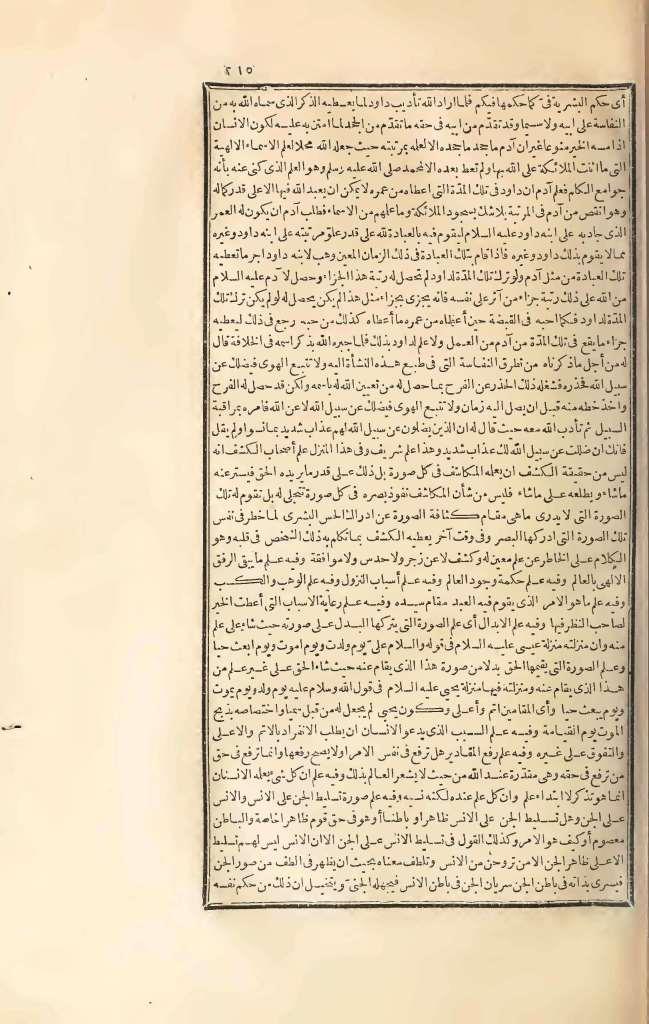 ٢١٥
أى حكم البشرية فىّ كما حكمها فيكم فلما أراد الله تأديب داود لما يعطيه الذكر الذى سماه الله به من
النفاسة على أبيه ولا سيما وقد تقدّم من أبيه فى حقه ما تقدّم من الجحد لما امتن به عليه لكون الانسان
اذا مسه الخير منوعا غير ان آدم ما جحد ما جحده الا لعلمه بمرتبته حيث جعله الله محلا لعلم الاسماء الالهية
التى ما أثنت الملائكة على الله بها ولم تعط بعده الا لمحمد صلى الله عليه وسلم وهو العلم الذى كنى عنه بأنه
جوامع الكلم فعلم آدم ان داود فى تلك المدّة التى أعطاه من عمره لا يمكن ان يعبد الله فيها الا على قدر كماله
وهو أنقص من آدم فى المرتبة بلا شك بسجود الملائكة وما علمهم من الاسماء فطلب آدم ان يكون له العمر
الذى جاد به على ابنه داود عليه السلام ليقوم فيه بالعبادة لله على قدر علوّ مرتبته على ابنه داود وغيره
مما لا يقوم بذلك داود وغيره فاذا قام بتلك العبادة فى ذلك الزمان المعين وهب لابنه داود أجر ما تعطيه
تلك العبادة من مثل آدم ولو ترك تلك المدّة لداود لم تحصل له رتبة هذا الجزاء وحصل لآدم عليه السلام
من الله على ذلك رتبة جزاء من آثر على نفسه فانه يجزى بجزاء مثل هذا لم يكن يحصل له لو لم يكن ترك تلك
المدّة لداود فكما أحبه فى القبضة حين أعطاه من عمره ما أعطاه كذلك من حبه رجع فى ذلك ليعطيه
جزاء ما يقع فى تلك المدّة من آدم من العمل ولا علم لداود بذلك فلما جبره الله بذكر اسمه فى الخلافة قال
له من أجل ما ذكرناه من تطرق النفاسة التى فى طبع هذه النشأة اليه ولا تتبع الهوى فيضلك عن
سبيل الله فحذره فشغله ذلك الحذر عن الفرح بما حصل له من تعيين الله له باسمه ولكن قد حصل له الفرح
وأخذ حظه منه قبل ان يصل اليه زمان ولا تتبع الهوى فيضلك عن سبيل الله لا عن الله فامره بمراقبة
السبيل ثم تأدب الله معه حيث قال له ان الذين يضلون عن سبيل الله لهم عذاب شديد بما نسوا ولم يقل
فانك ان ضللت عن سبيل الله لك عذاب شديد وهذا علم شريف وفى هذا المنزل علم أصحاب الكشف انه
ليس من حقيقة الكشف ان يعلمه المكاشف فى كل صورة بل ذلك على قدر ما يريده الحق فيستر عنه
ما شاء ويطلعه على ما شاء فليس من شأن المكاشف نفوذ بصره فى كل صورة تتجلى له بل تقوم له تلك
الصورة التى لا يدرى ما هى مقام كثافة الصورة عن ادراك الحس البشرى لما خطر فى نفس
تلك الصورة التى أدركها البصر وفى وقت آخر يعطيه الكشف بما تكلم به ذلك الشخص فى قلبه وهو
الكلام على الخاطر عن علم معين له وكشف لا عن زجر ولا حدس ولا موافقة وفيه علم ما يبقى الرفق
الالهى بالعالم وفيه علم حكمة وجود العالم وفيه علم أسباب النزول وفيه علم الوهب والكسب
وفيه علم ما هو الامر الذى يقوم فيه العبد مقام سيده وفيه علم رعاية الاسباب التى أعطت الخير
لصاحب النظر فيها وفيه علم الابدال أى علم الصورة التى يتركها البدل على صورته حيث شاء على علم
منه وان منزلته منزلة عيسى عليه السلام فى قوله والسلام علىّ يوم ولدت ويوم أموت ويوم أبعث حيا
وعلم الصورة التى يقيمها الحق بدلا من صورة هذا الذى يقام عنه حيث شاء الحق على غير علم من
هذا الذى يقام عنه ومنزلته فيها منزلة يحيى عليه السلام فى قول الله وسلام عليه يوم ولد ويوم يموت
ويوم يبعث حيا وأى المقامين أتم وأعلى وكون يحيى لم يجعل له من قبل سميا واختصاصه بذبح
الموت يوم القيامة وفيه علم السبب الذى يدعو الانسان ان يطلب الانفراد بالاتم والاعلى
والتفوق على غيره وفيه علم رفع المقادير هل ترفع فى نفس الامر أو لا يصح رفعها وانما ترفع فى حق
من ترفع فى حقه وهى مقدّرة عند الله من حيث لا يشعر العالم بذلك وفيه علم ان كل شئ يعلمه الانسان
انما هو تذكر لا ابتداء علم وان كل علم عنده لكنه نسيه وفيه علم صورة تسليط الجن على الانس والانس
على الجن وهل تسليط الجن على الانس ظاهر أو باطنا أو هو فى حق قوم ظاهرا خاصة والباطن
معصوم أو كيف هو الامر وكذلك القول فى تسليط الانس على الجن الا ان الانس ليس لهم تسليط
الا على ظاهر الجن الا من تروحن من الانس وتلطف معناه بحيث ان يظهر فى ألطف من صور الجن
فيسرى بذاته فى باطن الجن سريان الجن فى باطن الانس فيجهله الجنىّ ويتخيل ان ذلك من حكم نفسه